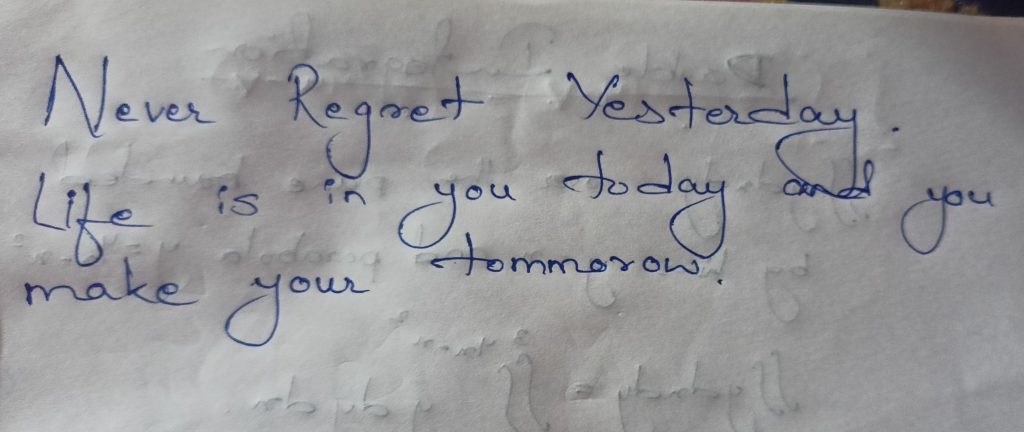 Never Regret Yesterday.
Life is in you today and you
make your tommorow.